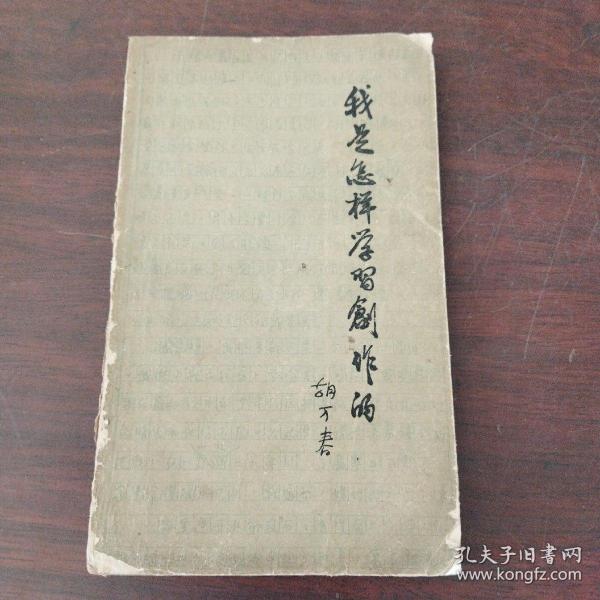 我是怎样学習創作的
胡万春
孔夫子旧书网
www.kongfz.com